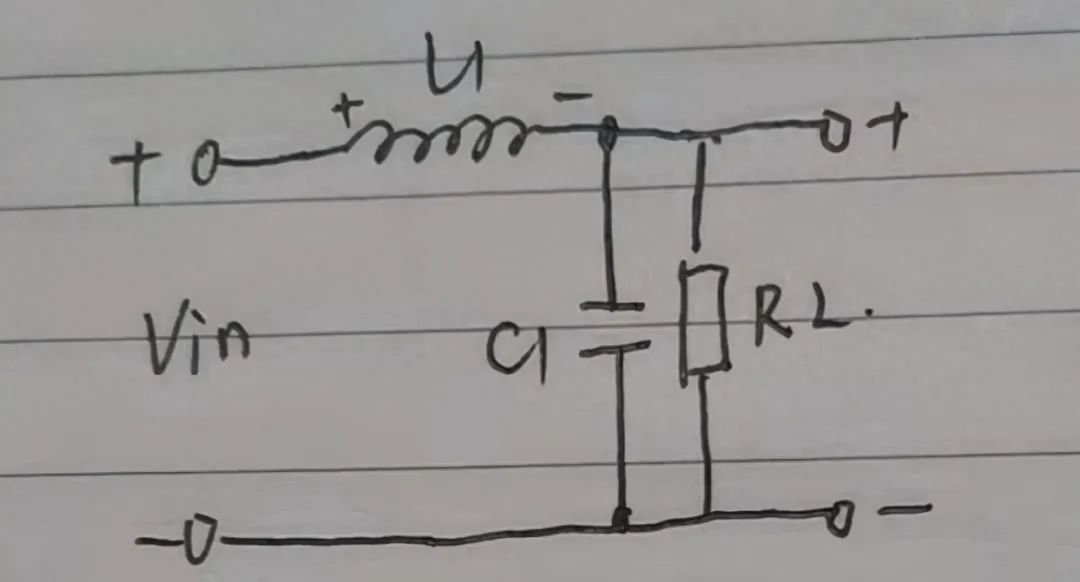 L1
+ -
+ +
Vin
C1
RL.
- -